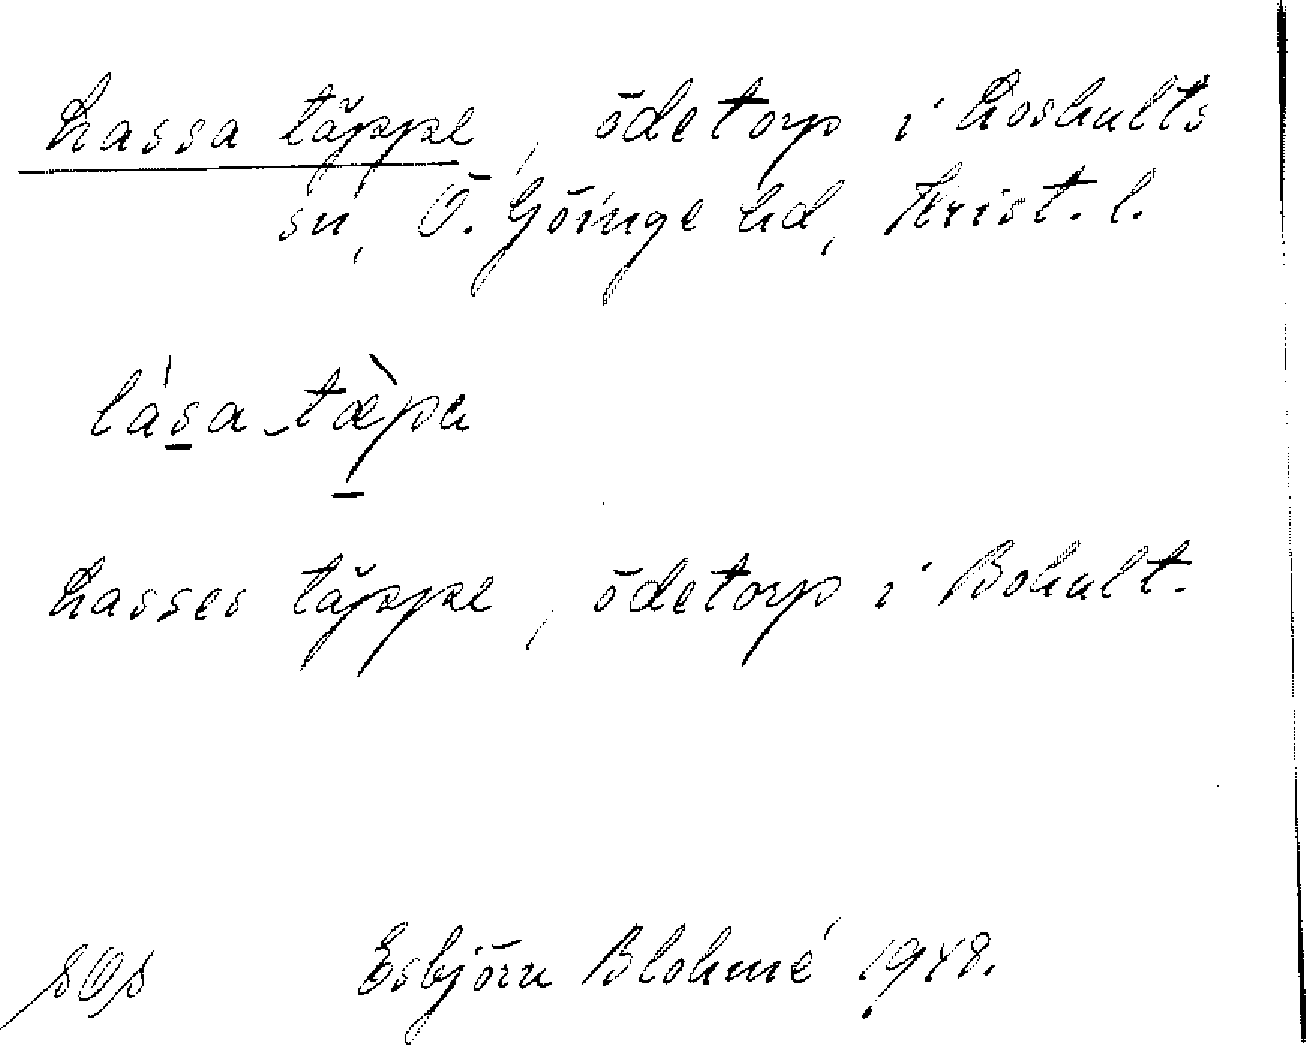 Lassa täppe, ödetorp i Loshults
sn, Ö. Göinge hd, Krist. l.
lása tæ̀pa
Lasses täppe, ödetorp i Bohult.
Esbjörn Blohmé 1948.